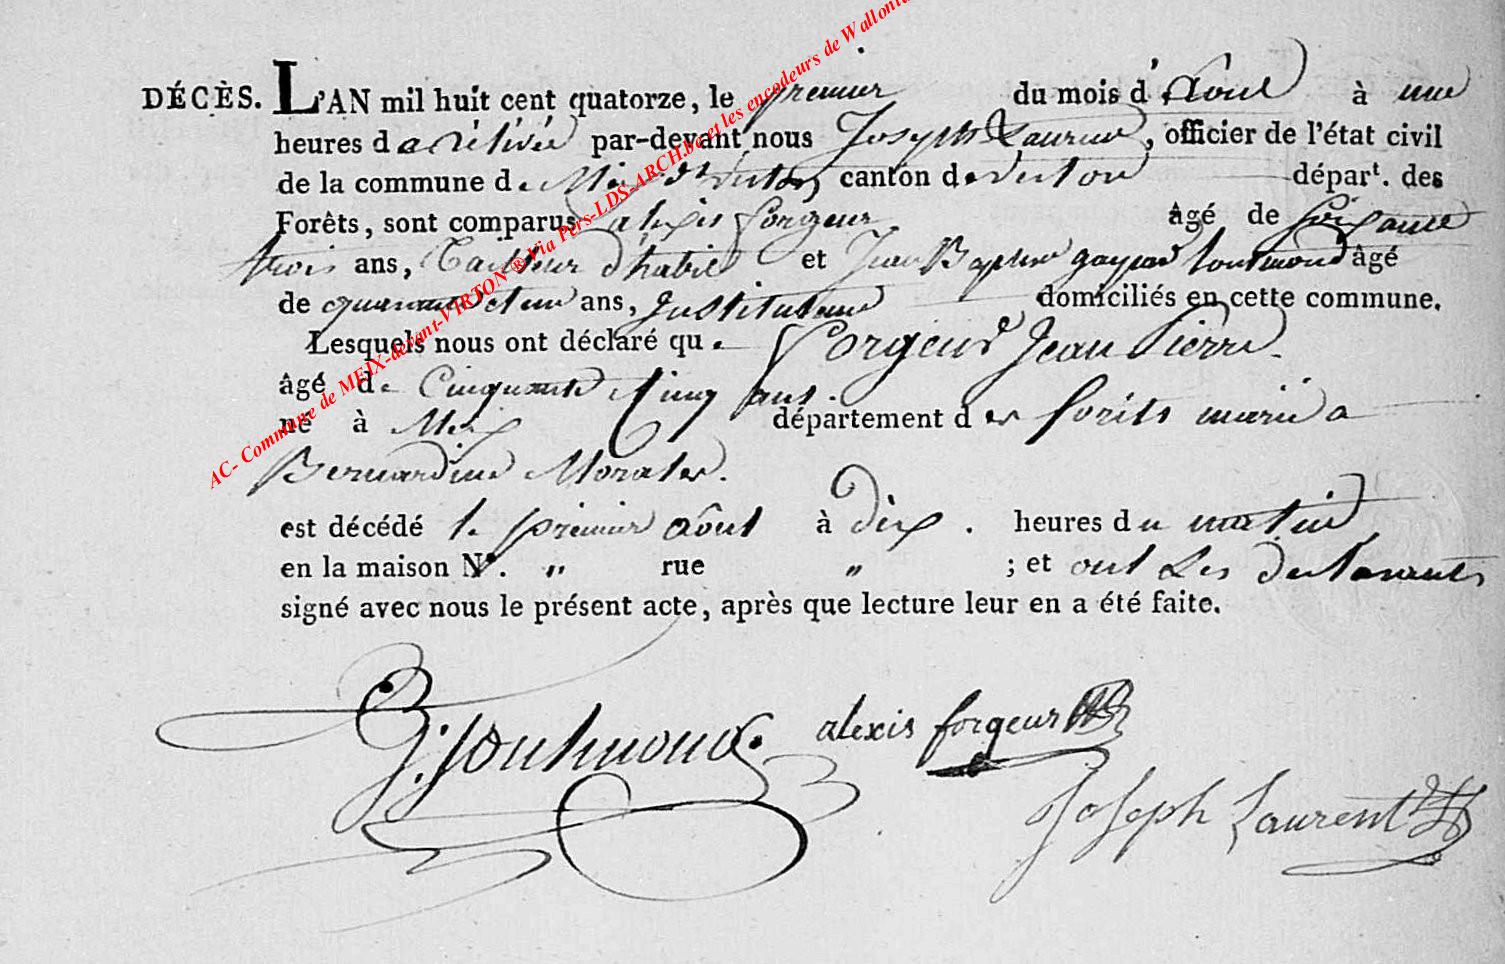 DÉCÈS. L'AN mil huit cent quatorze, le premier du mois d'Aout à une
heures de relivée par-devant nous Joseph Laurent, officier de l'état civil
de la commune de Meix dt virton canton de virton départ. des
Forêts, sont comparus alexis forgeur âgé de soixante
trois ans, Tailleur d'habit et Jean Baptiste gaspar âgé
de quarante et un ans, Instituteur domiciliés en cette commune.
Lesquels nous ont déclaré que forgeur Jean Pierre
âgé de Cinquante Cinq ans.
né à Meix département des forêts marié a
Bernardine
est décédé le premier août à dix . heures du matin
en la maison N°. " rue " ; et ont Les declarants
signé avec nous le présent acte, après que lecture leur en a été faite.
alexis forgeur
Joseph Laurent
AC- Commune de MEIX-devant-VIRTON ® Via Pers-LDS-ARCH.be et les encodeurs de Wallonie